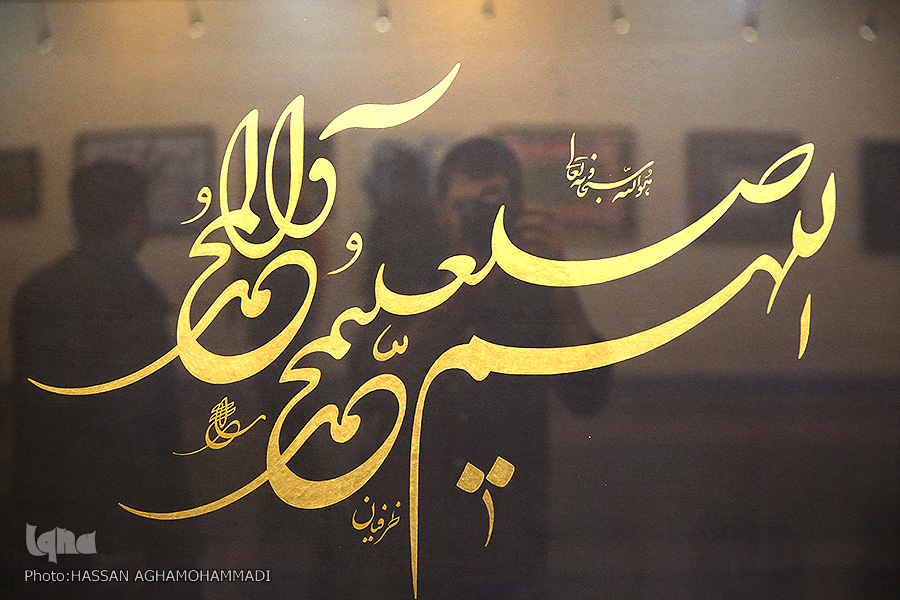 هو الله سبحانه و تعالی
اللهم صل علی محمد
و آل محمد
ظریفیان
iqna
Photo:HASSAN AGHAMOHAMMADI